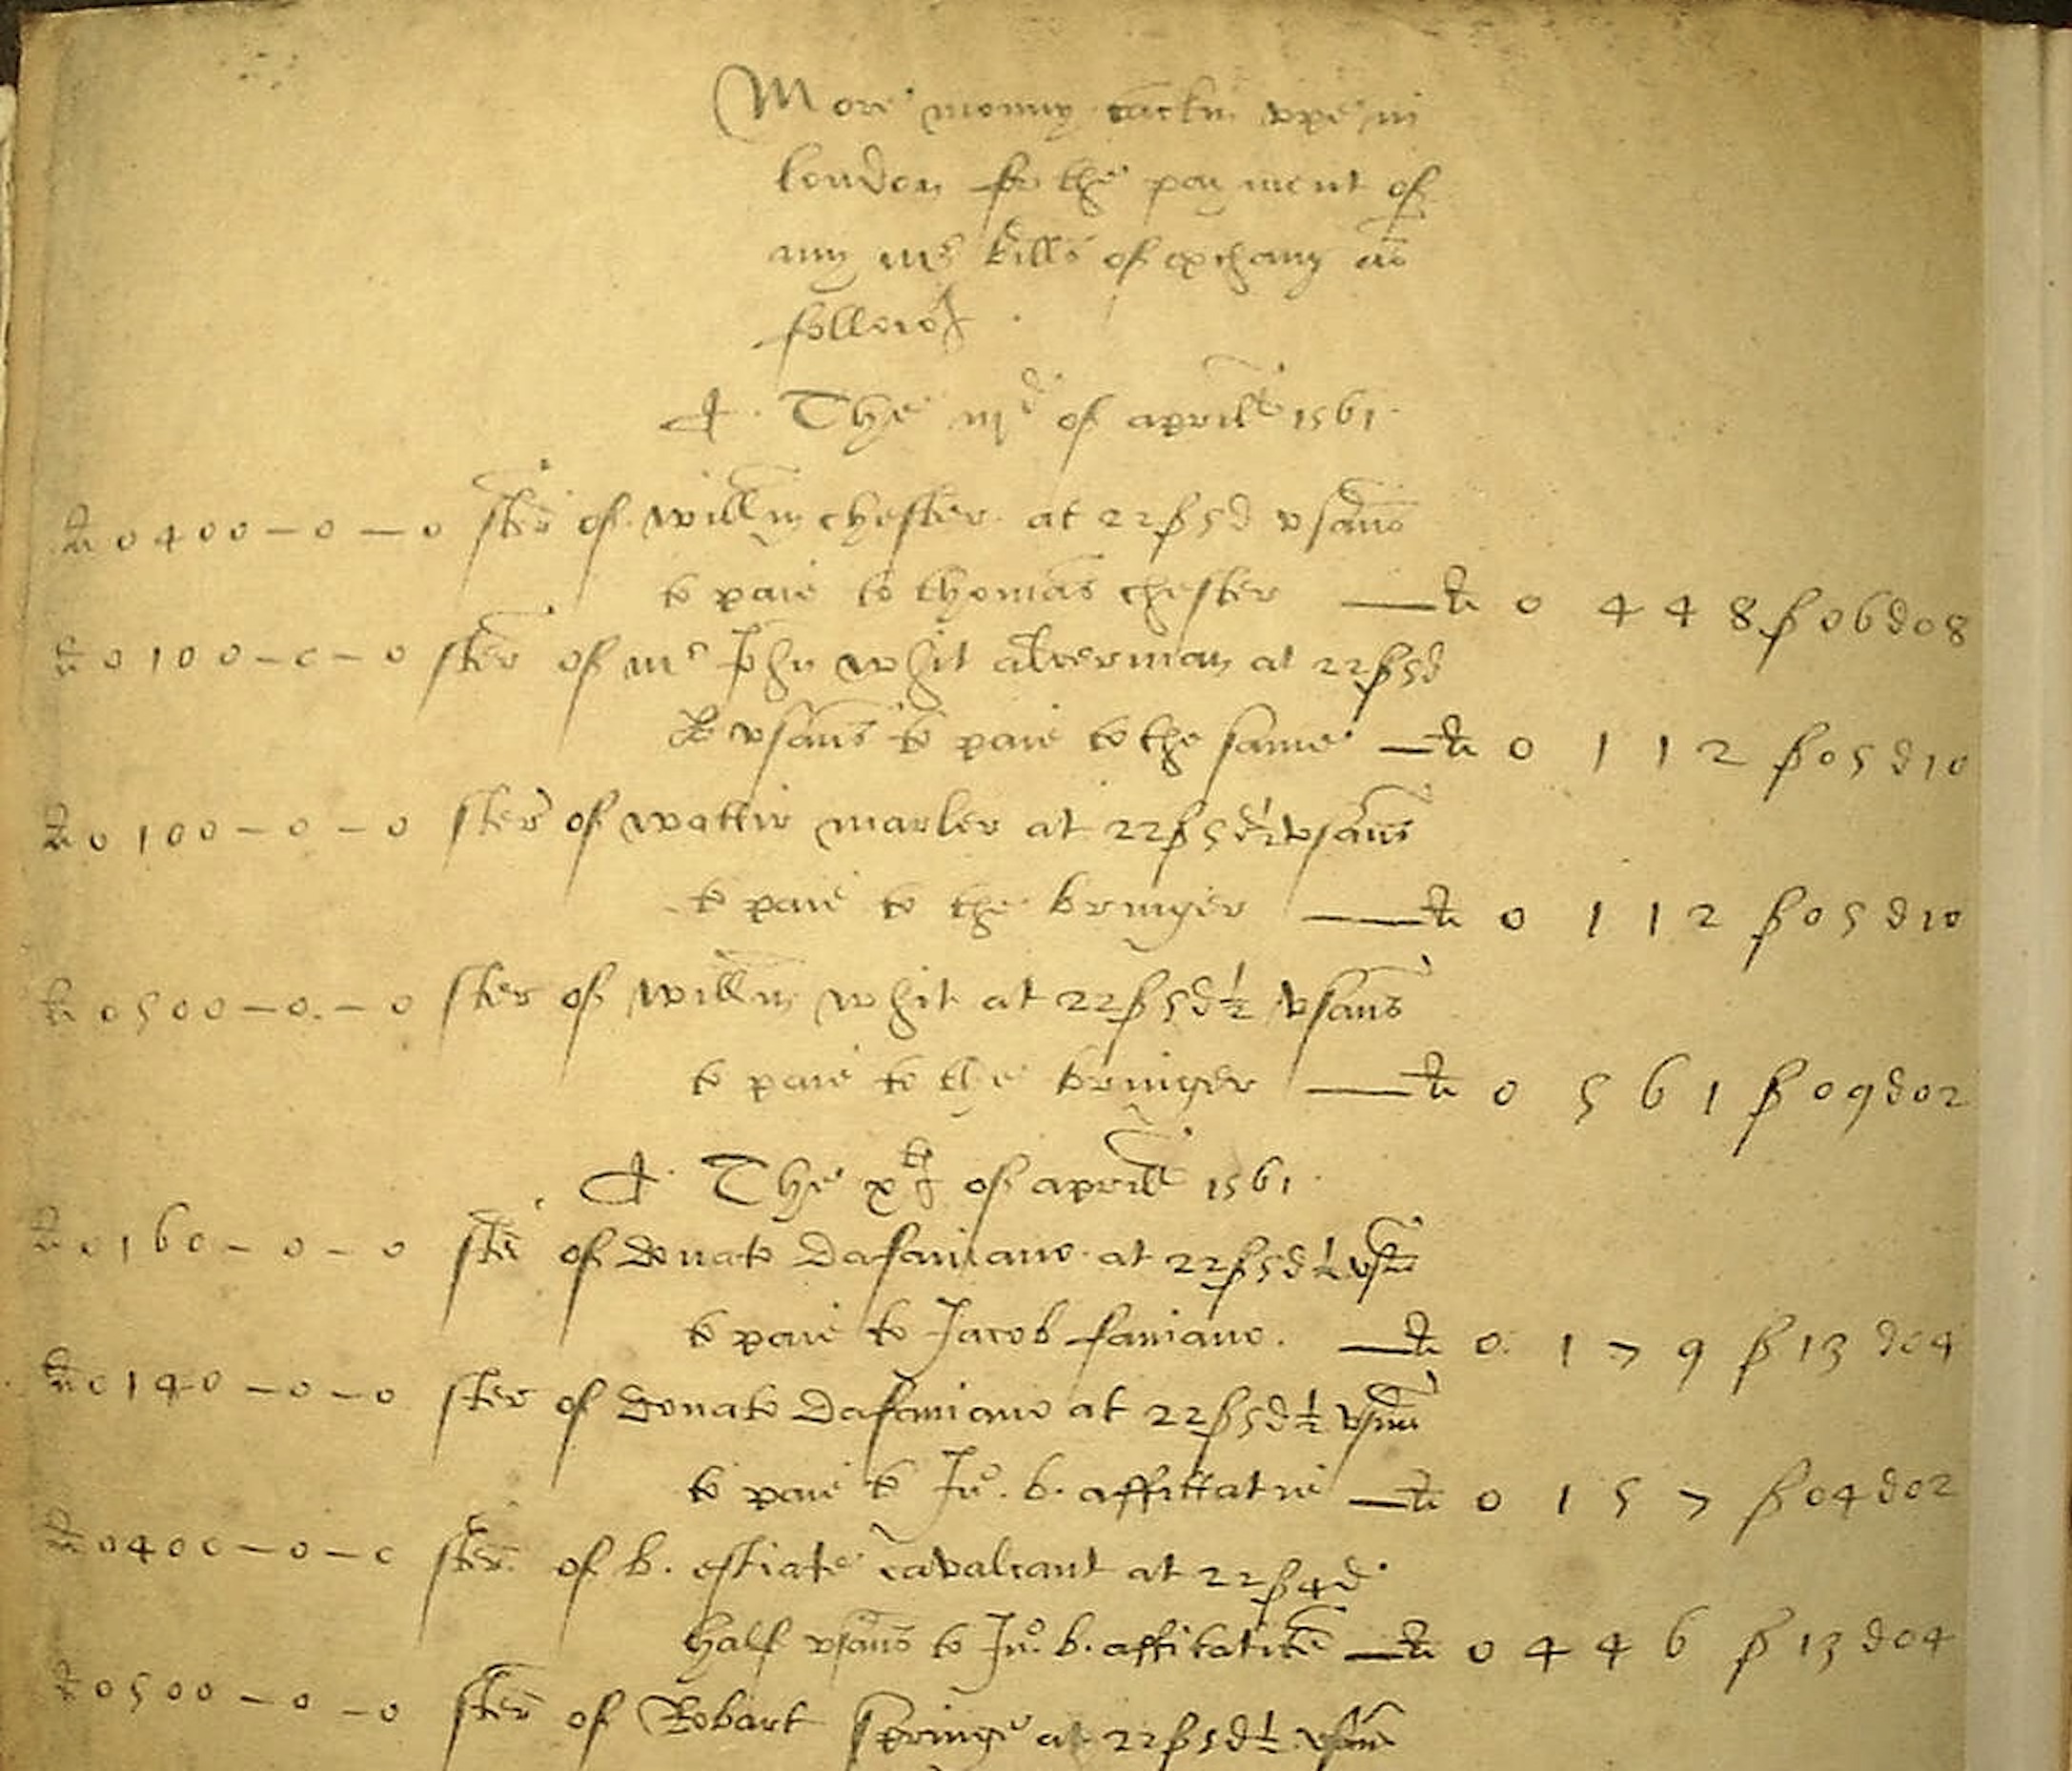 More monny tacken vpe in
london for the payment of
my mrs bills of exchang as
followes
The iiid of aprill 1561
li 0400 – 0 – 0 ster of willm chester at 22ß 5d vsans
to paie to thomas chester — li 0 4 4 8 ß 06 d 08
li 0100 – 0 – 0 ster of mr John whit alderman at 22ß 5d
vsans to paie to the same — li 0 1 1 2 ß 05 d 10
li 0100 – 0 – 0 ster of watter marler at 22ß 5d ½ vsans
to paie to the bringer — li 0 1 1 2 ß 05 d 10
li 0500 – 0 – 0 ster of willm whit at 22ß 5d ½ vsans
to paie to the bringer — li 0 5 6 1 ß 09 d 02
The xth of aprill 1561
li 0160 – 0 – 0 ster of donato dafaniano at 22ß 5d ½ vsans
to paie to Jacob faniano — li 0 1 7 9 ß 13 d 04
li 0140 – 0 – 0 ster of donato dafaniano at 22ß 5d ½ vsans
to paie to Jno. b. affittatie — li 0 1 5 7 ß 04 d 02
li 0400 – 0 – 0 ster of b. estiate cavalcant at 22ß 4d
half vsans to Jno. b. — li 0 4 4 6 ß 13 d 04
li 0500 – 0 – 0 ster of Robart springe at 22ß 5d ½ vsans